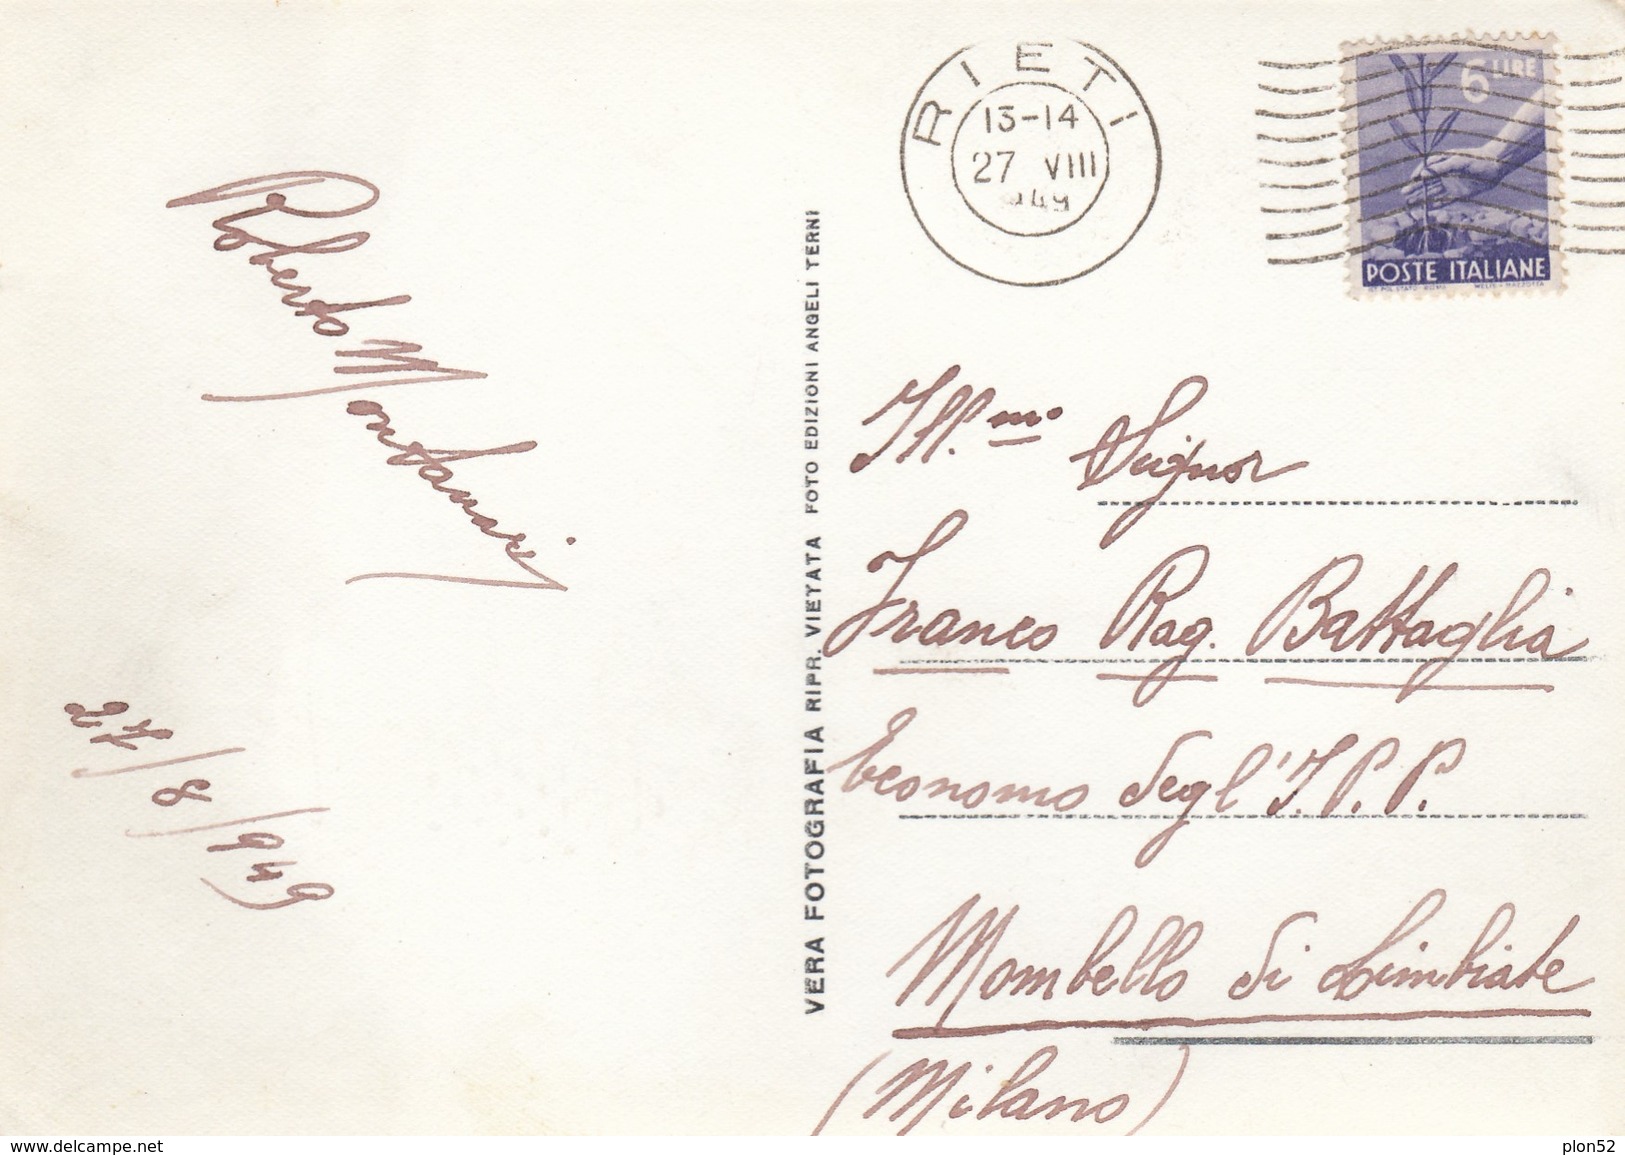 RIETI
13-14
27 VIII
949
6 LIRE
POSTE ITALIANE
IST. POL. STATO - ROMA MELIS - MAZZOTTA
Roberto Montanari
27/8/949
VERA FOTOGRAFIA RIPR. VIETATA FOTO EDIZIONI ANGELI TERNI
Ill.mo Signor
Franco Rag. Battaglia
Economo degl'I.P.P.
Mombello di Limbiate
(Milano)
www.delcampe.net
plon52